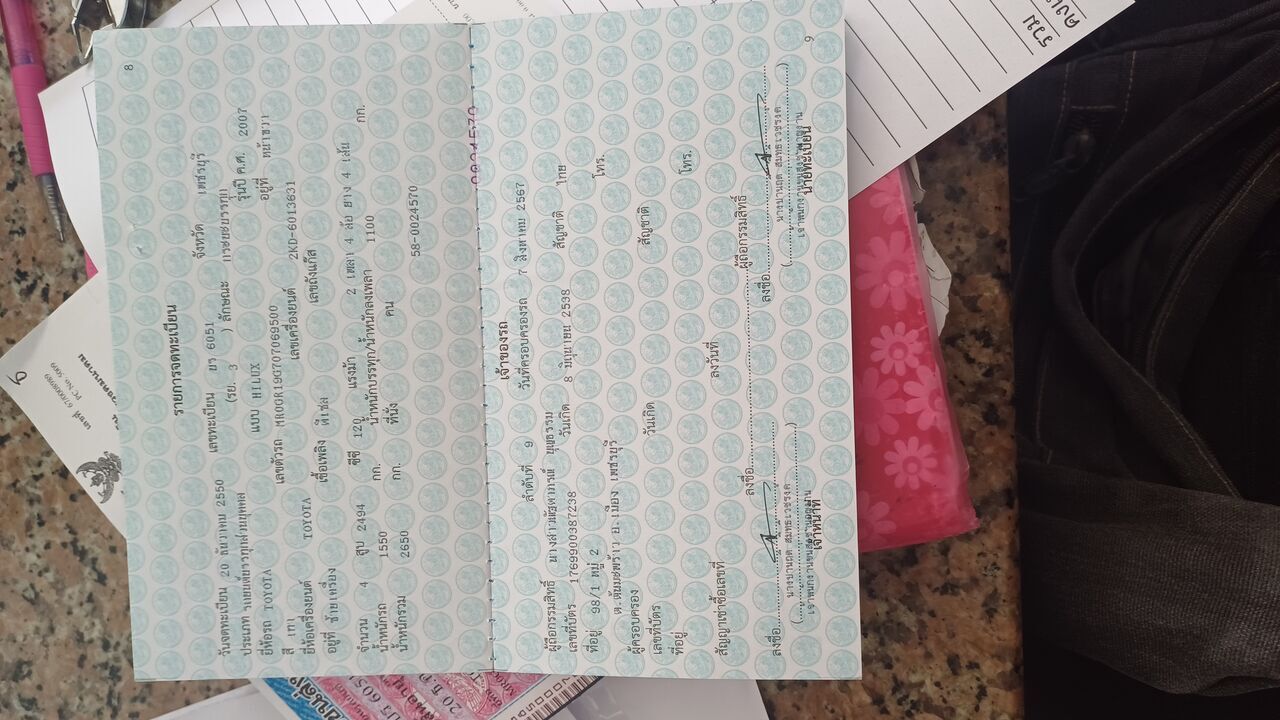 8
รายการจดทะเบียน
วันจดทะเบียน 20 ธันวาคม 2550 เลขทะเบียน บร 6051 จังหวัด เพชรบุรี
ประเภท รถยนต์บรรทุกส่วนบุคคล (รย. 3 ) ลักษณะ กระบะบรรทุก
ยี่ห้อรถ TOYOTA แบบ HILUX รุ่นปี ค.ศ. 2007
สี เทา เลขตัวรถ MR0GR19G707069500 อยู่ที่ หน้าขวา
ยี่ห้อเครื่องยนต์ TOYOTA เลขเครื่องยนต์ 2KD-6013631
อยู่ที่ ซ้ายเครื่อง เชื้อเพลิง ดีเซล เลขถังแก๊ส
จำนวน 4 สูบ 2494 ซีซี 120 แรงม้า 2 เพลา 4 ล้อ ยาง 4 เส้น
น้ำหนักรถ 1550 กก. น้ำหนักบรรทุก/น้ำหนักลงเพลา 1100 กก.
น้ำหนักรวม 2650 กก. ที่นั่ง คน
58-0024570
เจ้าของรถ
ลำดับที่ 9 วันที่ครอบครองรถ 7 สิงหาคม 2567
ผู้ถือกรรมสิทธิ์ บุญธรรม
เลขที่บัตร 1769900387238 วันเกิด 8 มิถุนายน 2538 สัญชาติ ไทย
ที่อยู่ 98/1 หมู่ 2 โทร.
ต.ต้นมะพร้าว อ.เมือง เพชรบุรี
ผู้ครอบครอง
เลขที่บัตร วันเกิด สัญชาติ
ที่อยู่ โทร.
สัญญาเช่าซื้อเลขที่ ลงวันที่
ลงชื่อ ผู้ถือกรรมสิทธิ์
ลงชื่อ ลงชื่อ
เจ้าหน้าที่ นายทะเบียน
9
รวม
เลขที่ 670008989
PC No. 5009